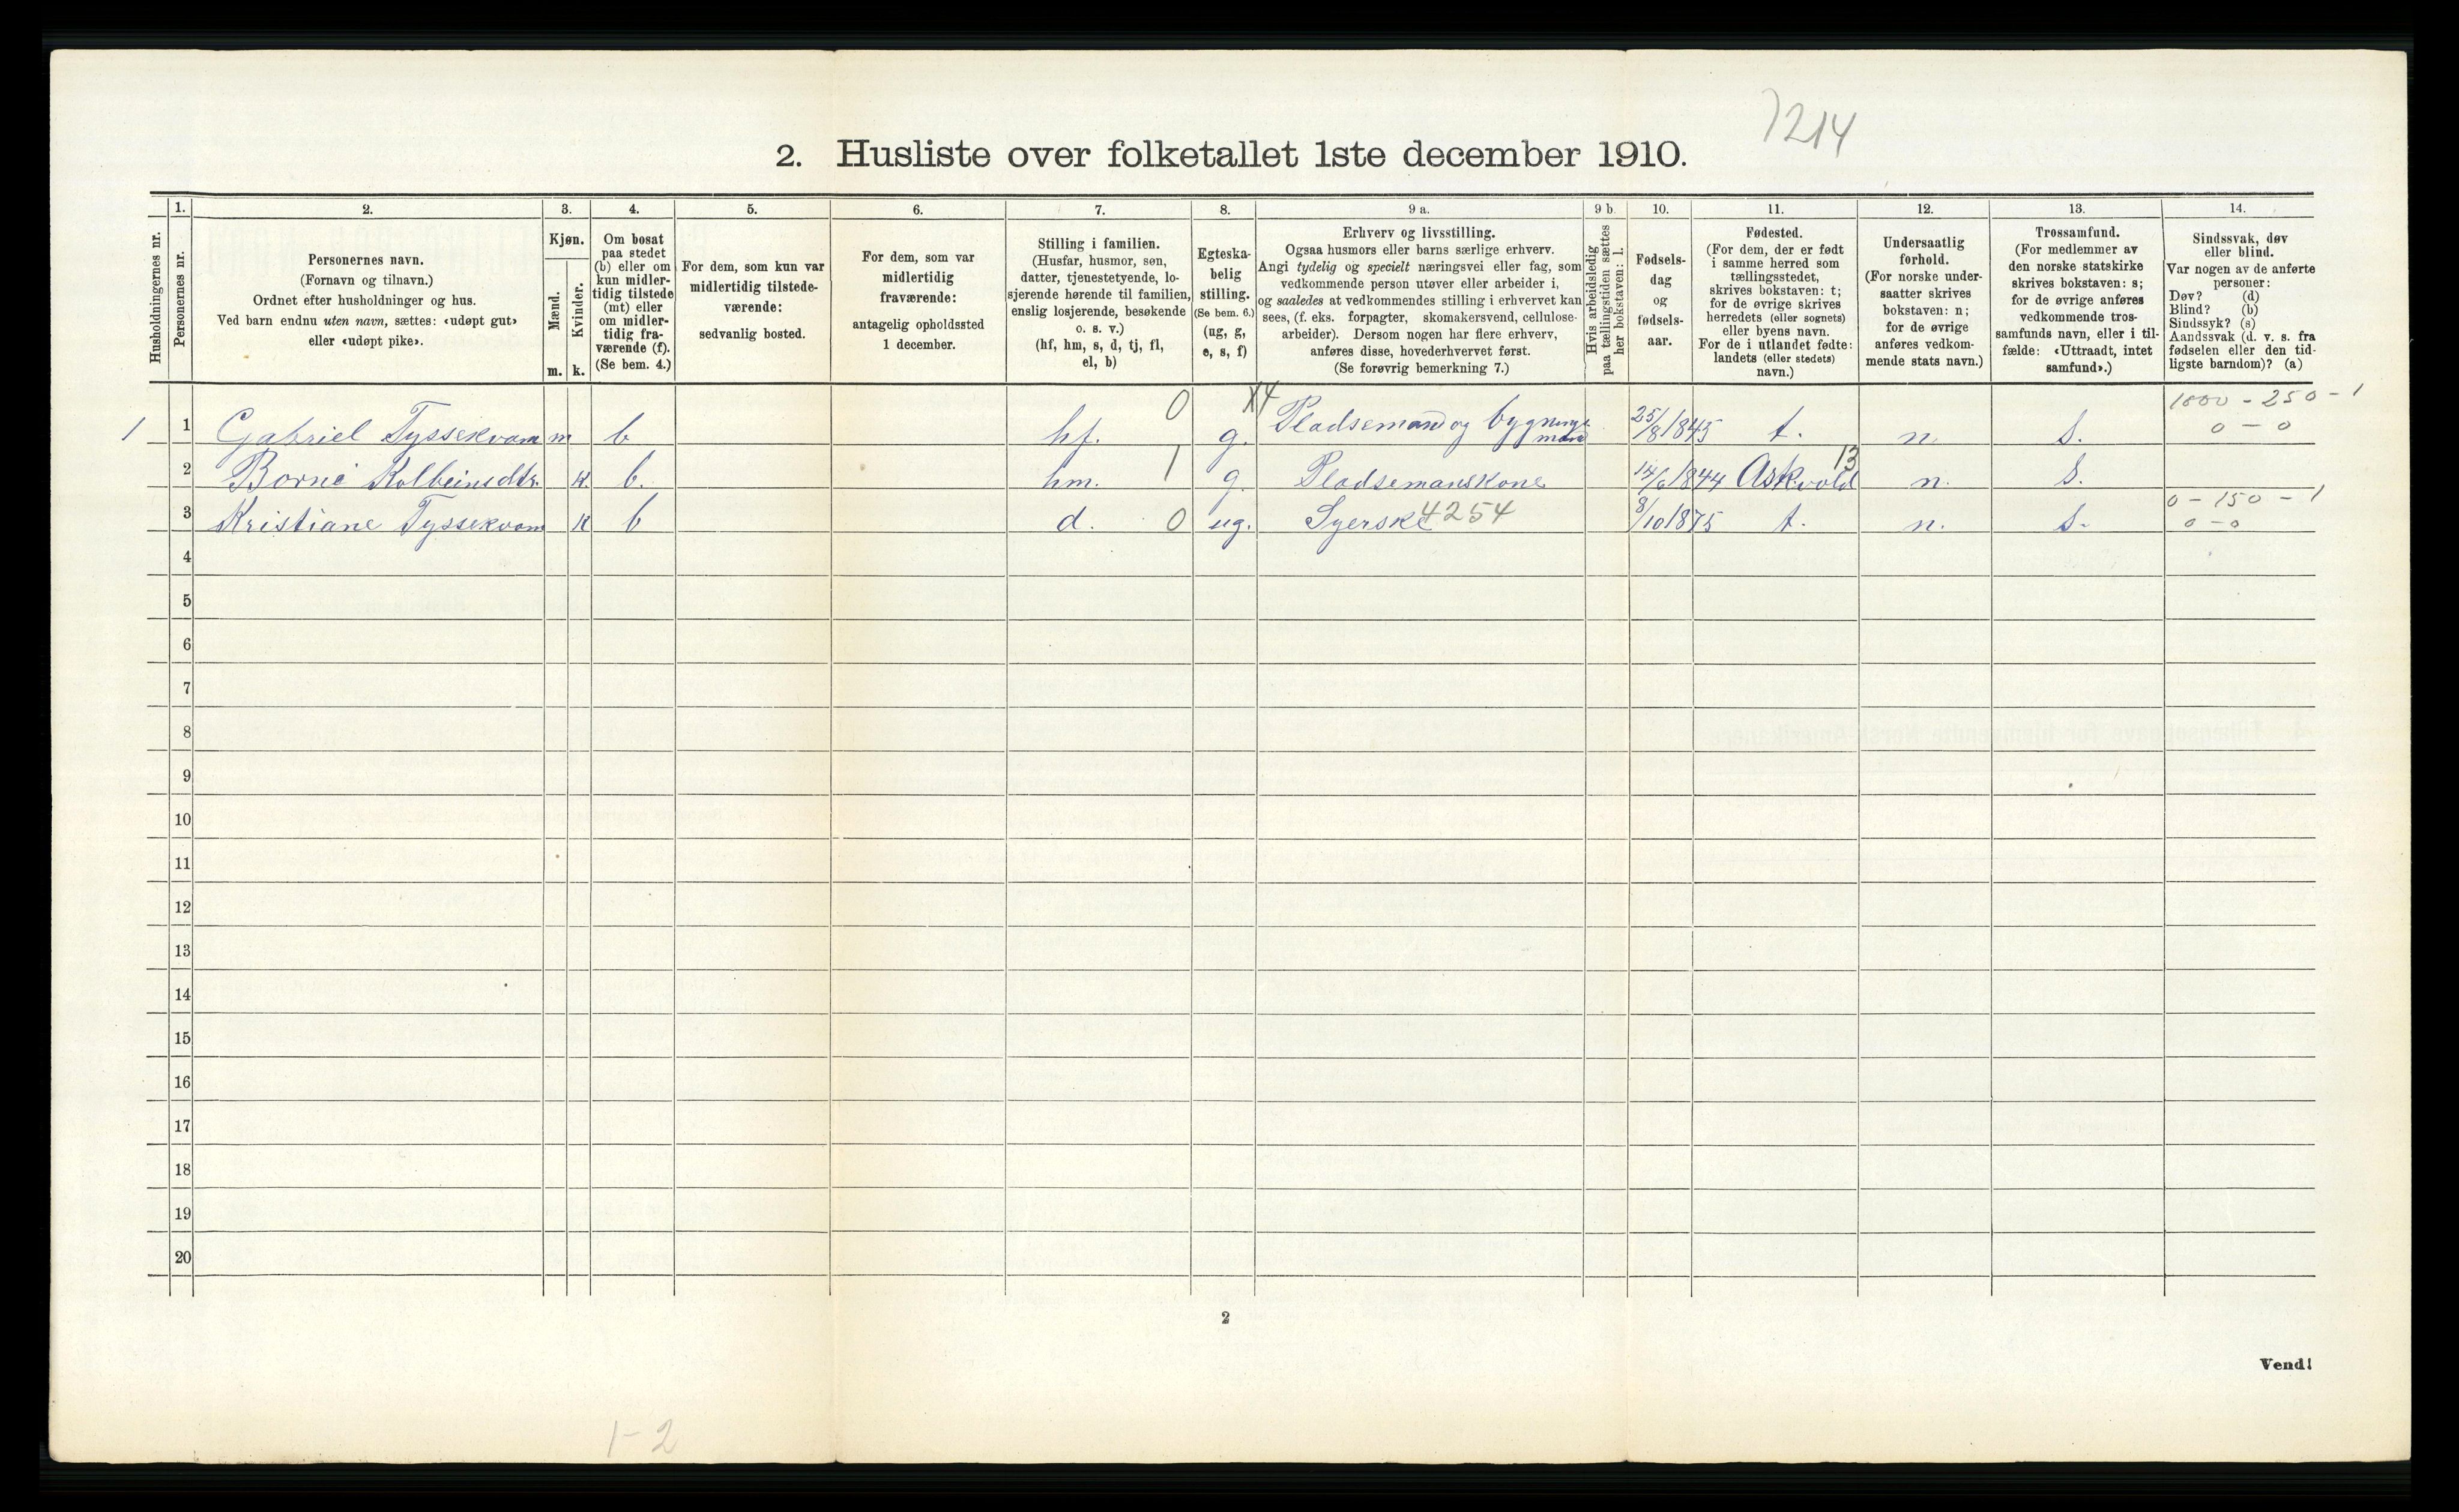 7214
2. Husliste over folketallet 1ste december 1910.
Husholdningernes nr.
1.
Personernes nr.
2.
Personernes navn.
(Fornavn og tilnavn.)
Ordnet efter husholdninger og hus.
Ved barn endnu uten navn, sættes: «udøpt gut»
eller «udøpt pike».
3.
Kjøn.
Mænd.
Kvinder.
m. k.
4.
Om bosat
paa stedet
(b) eller om
kun midler-
tidig tilstede
(mt) eller
om midler-
tidig fra-
værende (f).
(Se bem. 4.)
5.
For dem, som kun var
midlertidig tilstede-
værende:
sedvanlig bosted.
6.
For dem, som var
midlertidig
fraværende:
antagelig opholdssted
1 december.
7.
Stilling i familien.
(Husfar, husmor, søn,
datter, tjenestetyende, lo-
sjerende hørende til familien,
enslig losjerende, besøkende
o. s. v.)
(hf, hm, s, d, tj, fl,
el, b)
8.
Egteska-
belig
stilling.
(Se bem. 6.)
(ug, g,
e, s, f)
9 a.
Erhverv og livsstilling.
Ogsaa husmors eller barns særlige erhverv.
Angi tydelig og specielt næringsvei eller fag, som
vedkommende person utøver eller arbeider i,
og saaledes at vedkommendes stilling i erhvervet kan
sees, (f. eks. forpagter, skomakersvend, cellulose-
arbeider). Dersom nogen har flere erhverv,
anføres disse, hovederhvervet først.
(Se forøvrig bemerkning 7.)
9 b.
Hvis arbeidsledig
paa tællingstiden sættes
her bokstaven: l.
10.
Fødsels-
dag
og
fødsels-
aar.
11.
Fødested.
(For dem, der er født
i samme herred som
tællingsstedet,
skrives bokstaven: t;
for de øvrige skrives
herredets (eller sognets)
eller byens navn.
For de i utlandet fødte:
landets (eller stedets)
navn.)
12.
Undersaatlig
forhold.
(For norske under-
saatter skrives
bokstaven: n;
for de øvrige
anføres vedkom-
mende stats navn.)
13.
Trossamfund.
(For medlemmer av
den norske statskirke
skrives bokstaven: s;
for de øvrige anføres
vedkommende tros-
samfunds navn, eller i til-
fælde: «Uttraadt, intet
samfund».)
14.
Sindssvak, døv
eller blind.
Var nogen av de anførte
personer:
Døv? (d)
Blind? (b)
Sindssyk? (s)
Aandssvak (d. v. s. fra
fødselen eller den tid-
ligste barndom)? (a)
1 1 Gabriel Tyssekvam m b hf. 0 g. X4 Pladsemand og bygnings-
mand 25/8 1845 t. n. s. 1000 - 250 - 1
0 - 0
2 Borni Kolbeinsdtr. k. b. hm. 1 g. Pladsemanskone 14/6 1844 Askvold 13 n. s.
3 Kristiane Tyssekvam k b d. 0 ug. Syerske 4254 8/10 1875 t. n. s. 0 - 150 - 1
0 - 0
4
5
6
7
8
9
10
11
12
13
14
15
16
17
18
19
20
2
Vend!
1-2